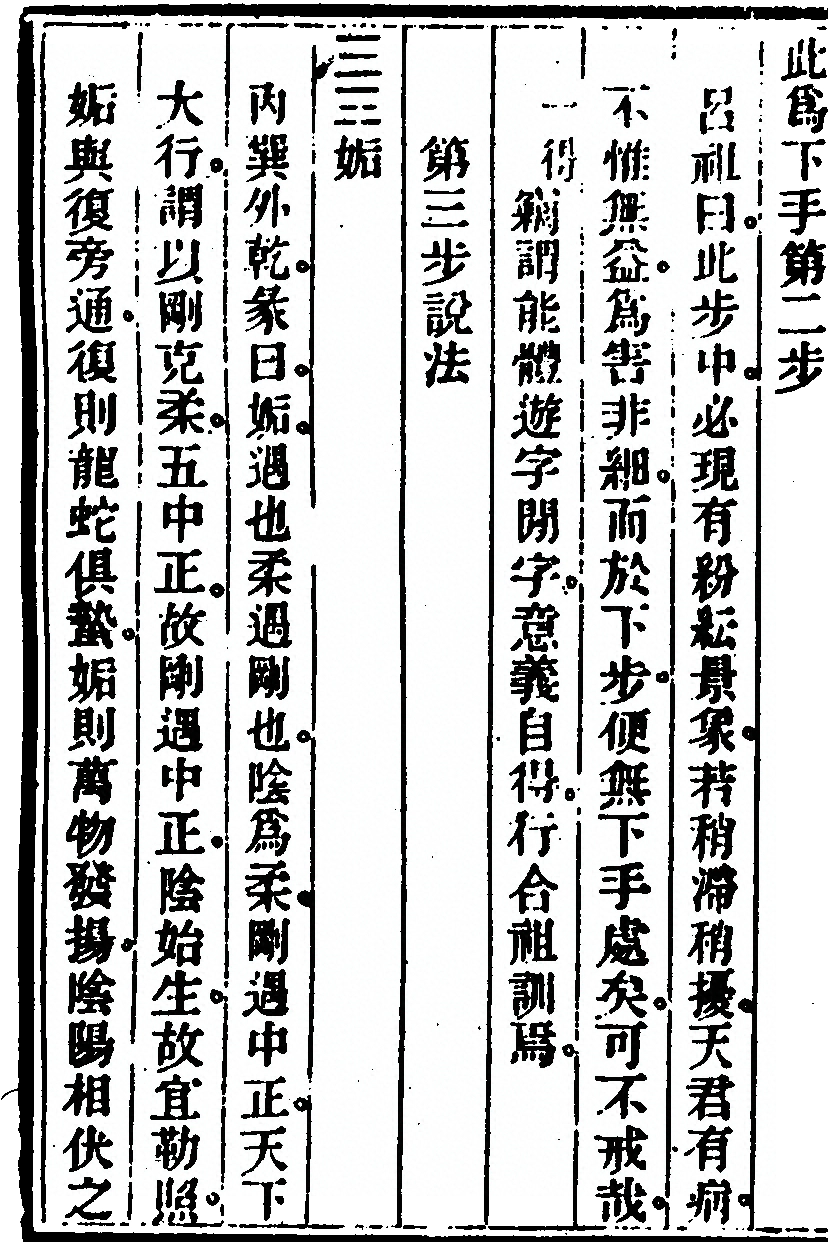 此爲下手第二步
呂祖曰。此步中。必現有紛紜景象。若稍滯稍擾。天君有病。
不惟無益。爲害非細。而於下步。便無下手處矣。可不戒哉。
一得竊謂能體遊字閒字。意義自得。行合祖訓焉。
第三步說法
☰☴姤
內巽外乾。彖曰。姤。遇也柔遇剛也。陰爲柔。剛遇中正。天下
大行。謂以剛克柔。五中正。故剛遇中正。陰始生。故宜勒照。
姤與復旁通。復則龍蛇俱蟄。姤則萬物發揚。陰陽相伏之